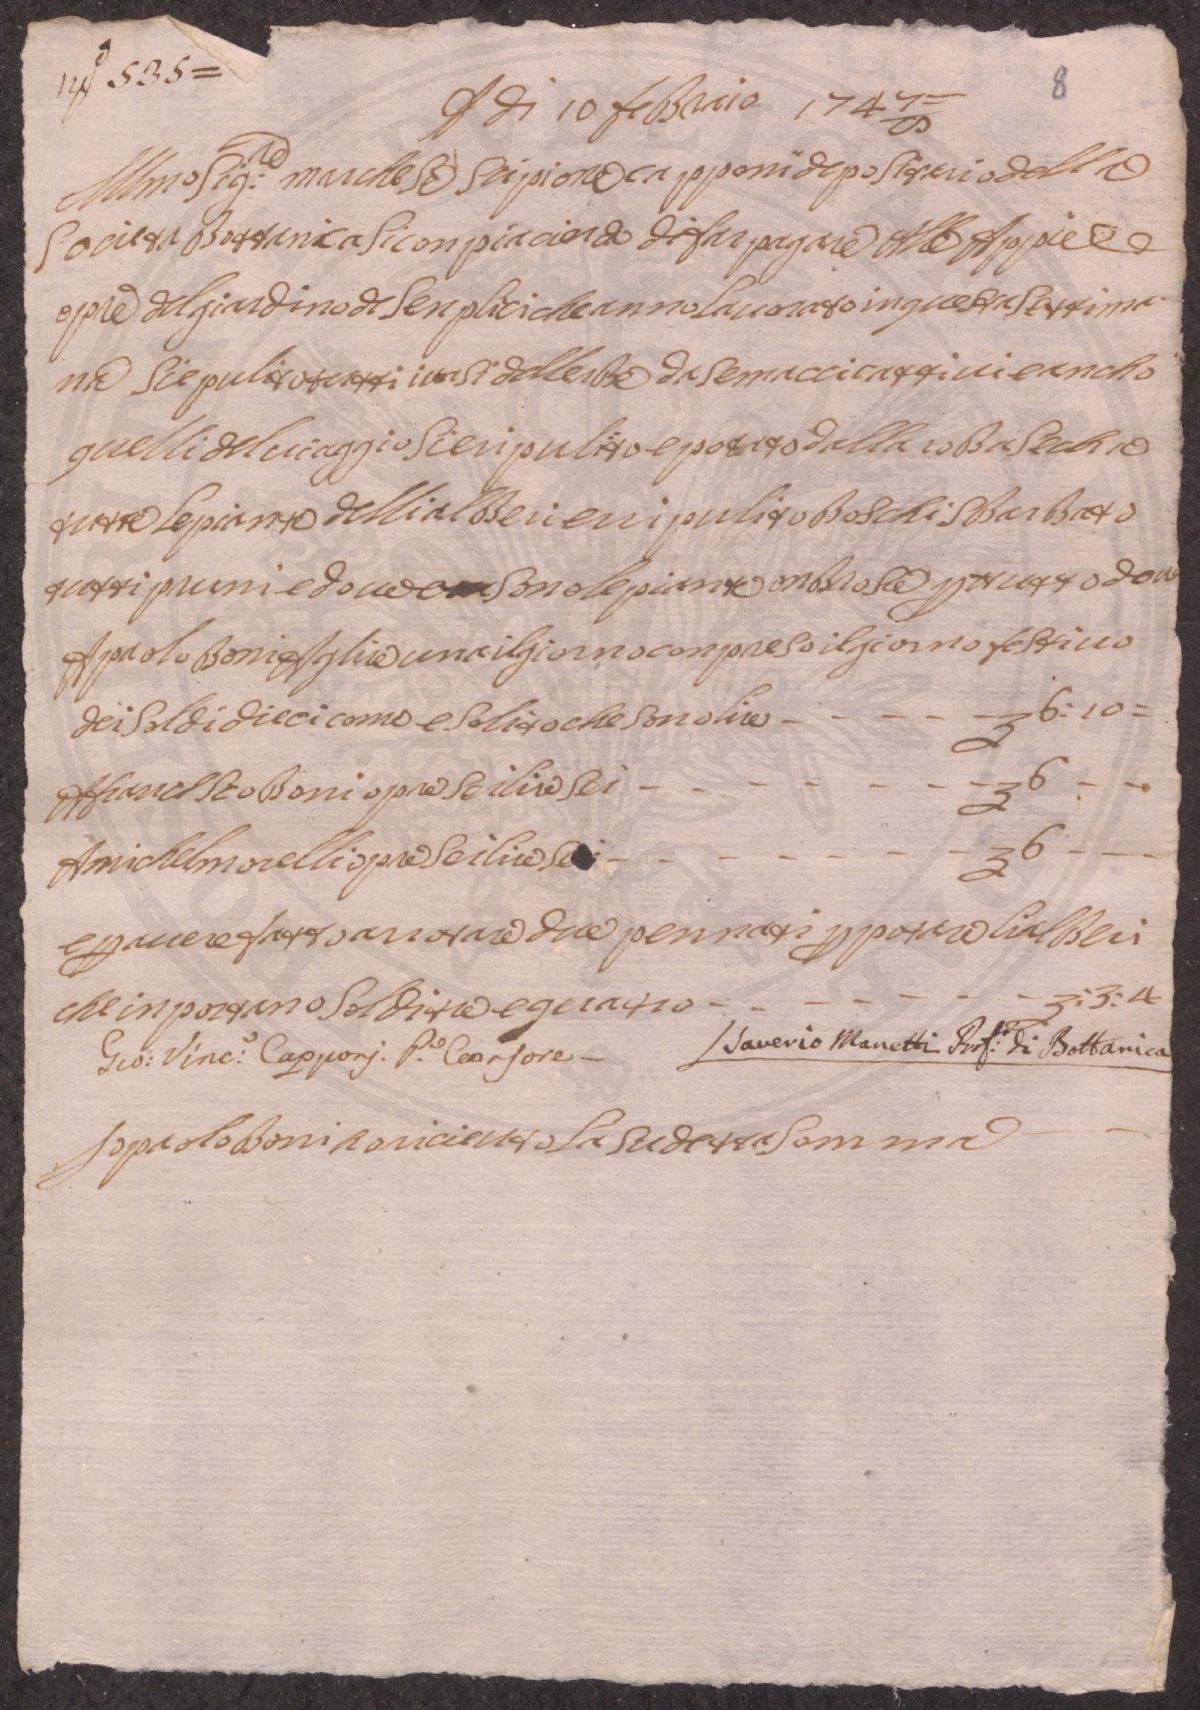 No 535=
8
A di 10 febraio 1747/8
Illmo Sig:re marchese Scipione capponi depositario della
Societa Bottanica Si conpiacierà di far pagare alle Appie
opre del giardino de Senplici che anno lauorato in questa settima
na Sie pulito tutti i uasi dellerbe da semacci cattiui e ancho
quelli del uiaggio Sie ripulito e potato dalla roba secha
tutte le piante delli alberi e ripulito Boschi Sbarbato
tutti pruni e doue sono le piante onbrose p tutto doue
A paolo Boni A lire una il giorno conpreso il giorno festiuo
dei Soldi dieci come e Solito che sono lire - - - - - 6: 10 =
A francesco Boni opre Sei lire Sei - - - - - - - - 6 - -
A michel morelli opre Sei lire Sei - - - - - - - - 6 - - -
e p auere fatto arrotare due pennati p potare li alberi
che inportano Soldi tre e quatro - - - - - - - : 3: 4
Gio: Vinc:o Capponj. P:o Censore - Saverio Manetti Prof:re di Bottanica
Io paolo Boni o riceuto La Sudetta Somma